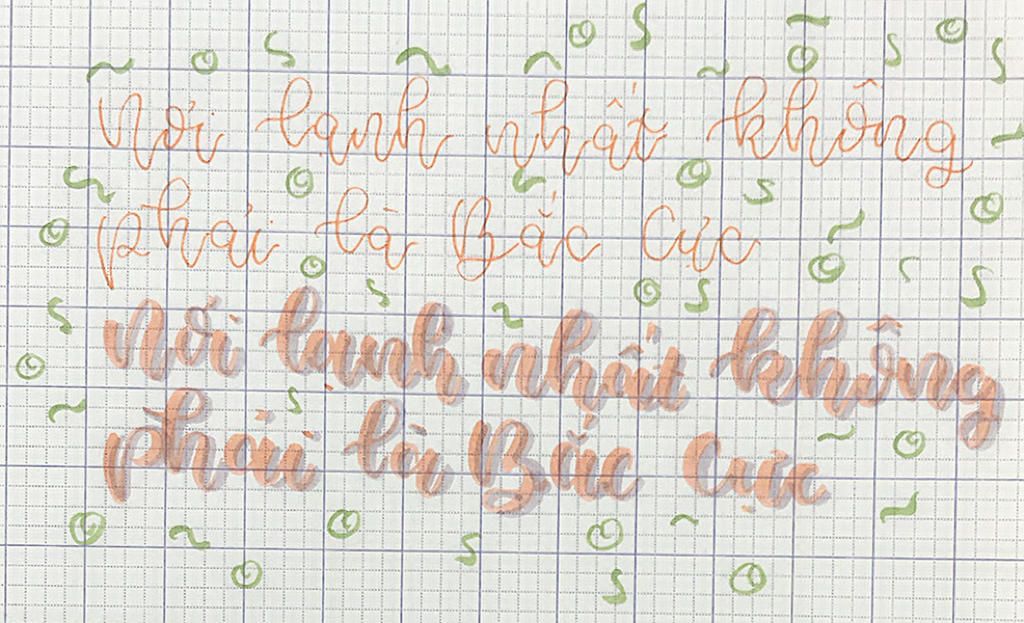 Nơi lạnh nhất không
phải là Bắc Cực
Nơi lạnh nhất không
phải là Bắc Cực